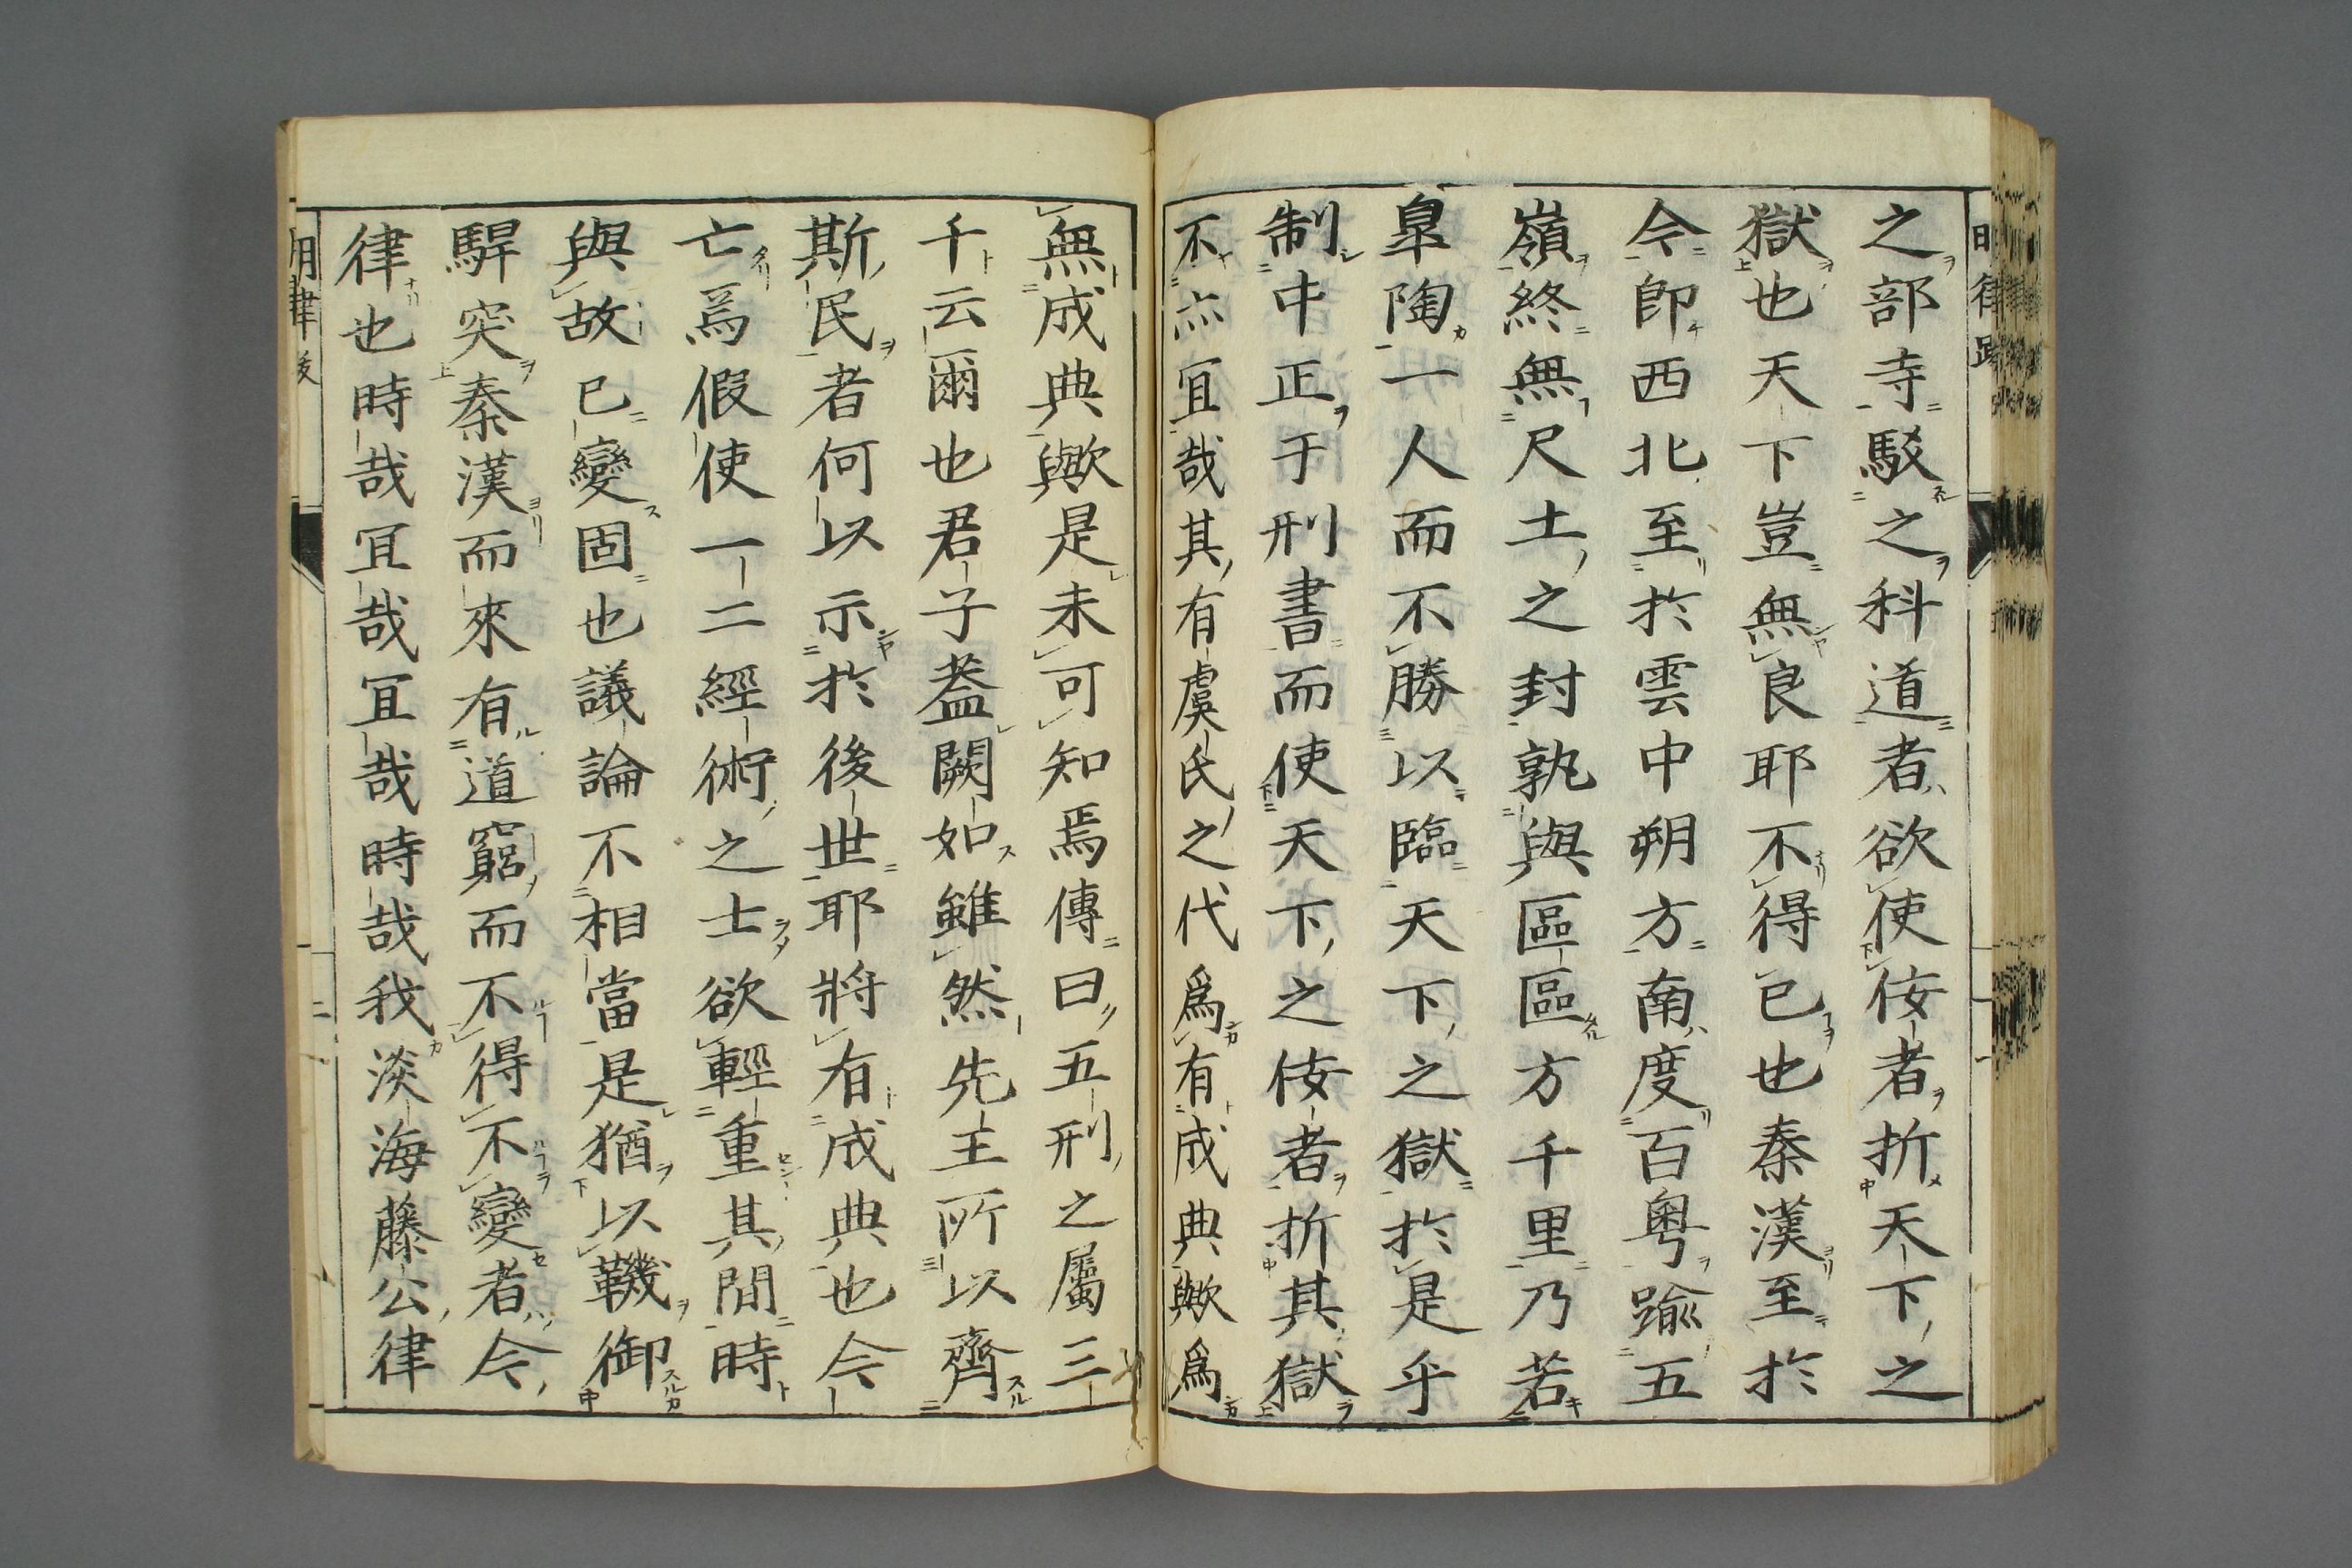 之部寺駁之科道者欲使佞者折天下之
獄也天下豈無良耶不得已也秦漢至於
今卽西北至於雲中朔方南度百粤踰五
嶺終無尺土之封孰與區區方千里乃若
皐陶一人而不勝以臨天下之獄於是乎
制中正于刑書而使天下之佞者折其獄
不亦冝哉其有虞氏之代爲有成典歟爲
無成典歟是未可知焉傳曰五刑之屬三
千云爾也君子葢闕如雖然先王所以齊
斯民者何以示於後世耶將有成典也今
亡焉假使一二經術之士欲輕重其間時
與故已變固也議論不相當是猶以鞿御
駻突秦漢而來有道窮而不得不變者今
律也時哉冝哉冝哉時哉我淡海藤公律